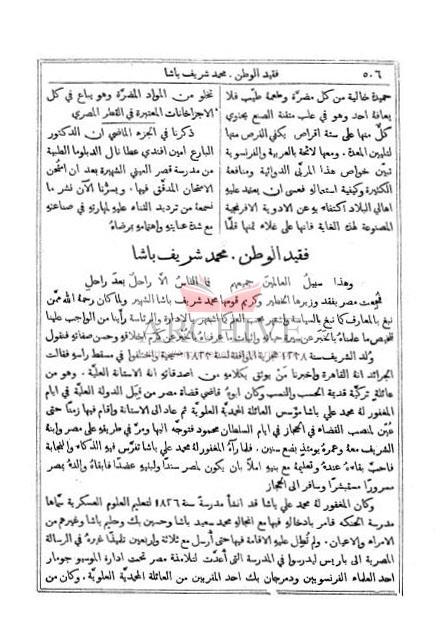 ٥٠٦
فقيد الوطن . محمد شريف باشا
حميدة خالية من كل مضرَّة وطعمهُ طيّب فلا
يعافهُ احد وهو في علب متقنة الصنع يحتوي
كلٌّ منها على ستة اقراص يكفي القرص منها
لتليين المعدة . ومعها لائحة بالعربية والفرنسوية
تبيّن خواص هذا المربَّى الدوائية ومنافعهُ
الكثيرة وكيفية استعمالهِ فعسى ان يعتمد عليهِ
اهالي البلاد اكتفاءً بهِ عن الادوية الافرنجية
المصنوعة لهذه الغاية فانها على غلاء ثمنها قلَّما
تخلو من المواد المضرَّة وهو يباع في كل
الاجزاخانات المعتبرة في القطر المصري
ذكرنا في الجزء الماضي ان الدكتور
البارع امين افندي عطا نال الدبلوما الطبية
من مدرسة قصر العيني الشهيرة بعد ان امتُحن
الامتحان المدقَّق فيها . ويسرُّنا الآن نشر ما
نسمعهُ من ترديد الثناء عليهِ لمهارتهِ في صناعتهِ
مع شدة عنايتهِ واهتمامهِ بمرضاهُ
فقيد الوطن . محمد شريف باشا
وهذا سبيلُ العالمينَ جميعهم فما الناسُ الَّا راحلٌ بعدَ راحلِ
فُجعت مصر بفقد وزيرها الخطير وكريم قومها محمد شريف باشا الشهير ولما كان رحمهُ الله ممَّن
نبغ بالمعارف كما نبغ بالسياسة واشتهر بحب العلم كما اشتهر بالادارة والرئاسة رأينا من الواجب علينا
تلخيص ما علمناهُ بالخبر عن سيرة حياتهِ واثبات ما عرفناهُ من كرم اخلاقهِ وحسن صفاتهِ فنقول
وُلد الشريف سنة ١٢٣٨ هجرية الموافقة لسنة ١٨٢٣ مسيحية واختلفوا في مسقط راسهِ فقالت
الجرائد انهُ القاهرة واخبرنا مَن يوثق بكلامهِ من اصدقائهِ انهُ الاستانة العليَّة . وهو من
عائلةٍ تركيَّة قديمة الحسب والنسب وكان ابوهُ قاضي قضاة مصر من قِبَل الدولة العليَّة في ايام
المغفور لهُ محمد علي باشا مؤسس العائلة المحمدية العلوية ثم عاد الى الاستانة واقام فيها زمنًا حتى
عُيّن لمنصب القضاء في الحجاز في ايام السلطان محمود فتوجَّه اليها ومرَّ في طريقهِ على مصر وابنهُ
الشريف معهُ وعمرهُ يومئذٍ بضع سنين . فلما رآهُ المغفور لهُ محمد علي باشا تفرَّس فيهِ الذكاء والنجابة
فاحبَّ بقاءهُ عندهُ وتعليمهُ مع بنيهِ املًا بان يكون لمصر سندًا ولبنيهِ عضدًا فابقاهُ والدهُ بمصر
مسرورًا مستبشرًا وسافر الى الحجاز
وكان المغفور لهُ محمد علي باشا قد انشأ مدرسةً سنة ١٨٢٦ لتعليم العلوم العسكرية سمَّاها
مدرسة الخنكة فامر بادخالهِ فيها مع انجالهِ محمد سعيد باشا وحسين بك وحليم باشا وغيرهم من
الامراء والاعيان . ولم تطُل عليهِ الاقامة فيها حتى أُرسل مع ثلاثة واربعين تلميذًا غيرهُ في الرسالة
المصرية الى باريس ليدرسوا في المدرسة التي أُعدَّت لتلامذة مصر تحت ادارة الموسيو جومار
احد العلماء الفرنسويين ودمرجان بك احد المقربين من العائلة المحمدية العلويَّة . وكان من
ARCHIVE